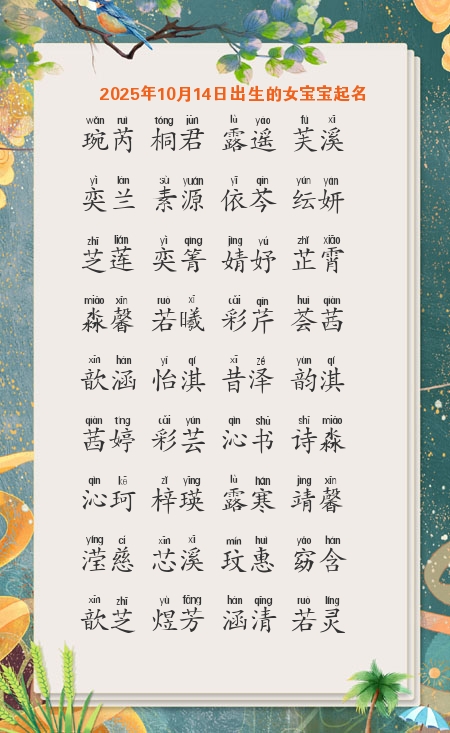 2025年10月14日出生的女宝宝起名
wǎn ruì tóng jūn lù yáo fú xī
琬芮 桐君 露遥 芙溪
yì lán sù yuán yī qín yún yán
奕兰 素源 依芩 纭妍
zhī lián yì qìng jìng yú zhǐ xiāo
芝莲 奕箐 婧妤 芷霄
miǎo xīn ruò xī cǎi qín huì qiàn
淼馨 若曦 彩芹 荟茜
xīn hán yí qí xī zé yùn qí
歆涵 怡淇 昔泽 韵淇
qiàn tíng cǎi yún qìn shū shī miǎo
茜婷 彩芸 沁书 诗淼
qìn kē zǐ yīng lù hán jìng xīn
沁珂 梓瑛 露寒 靖馨
yíng cí xīn xī mín huì yǎo hán
滢慈 芯溪 玟惠 窈含
xīn zhī yù fāng hán qīng ruò líng
歆芝 煜芳 涵清 若灵